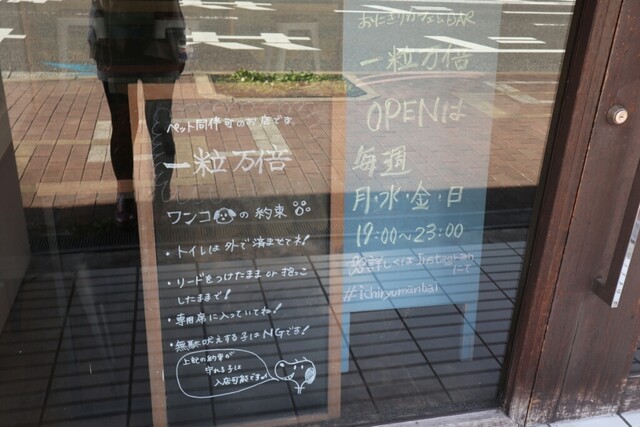 ペット同伴可のお店です。
一粒万倍
ワンコの約束
・トイレは外で済ませてね!
・リードをつけたまま or 抱っこ
したままで!
・専用席に入っていてね!
・無駄吠えする子はNGです!
上記の約束が
守れる子は
入店可能ですU
おにぎりカフェ&BAR
一粒万倍
OPENは
毎週
月・水・金・日
19:00〜23:00
詳しくはInstagram
にて
#ichiryumanbai